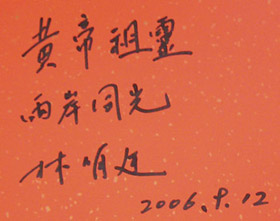 黃帝祖靈
兩岸同光
林明廷
2006.9.12